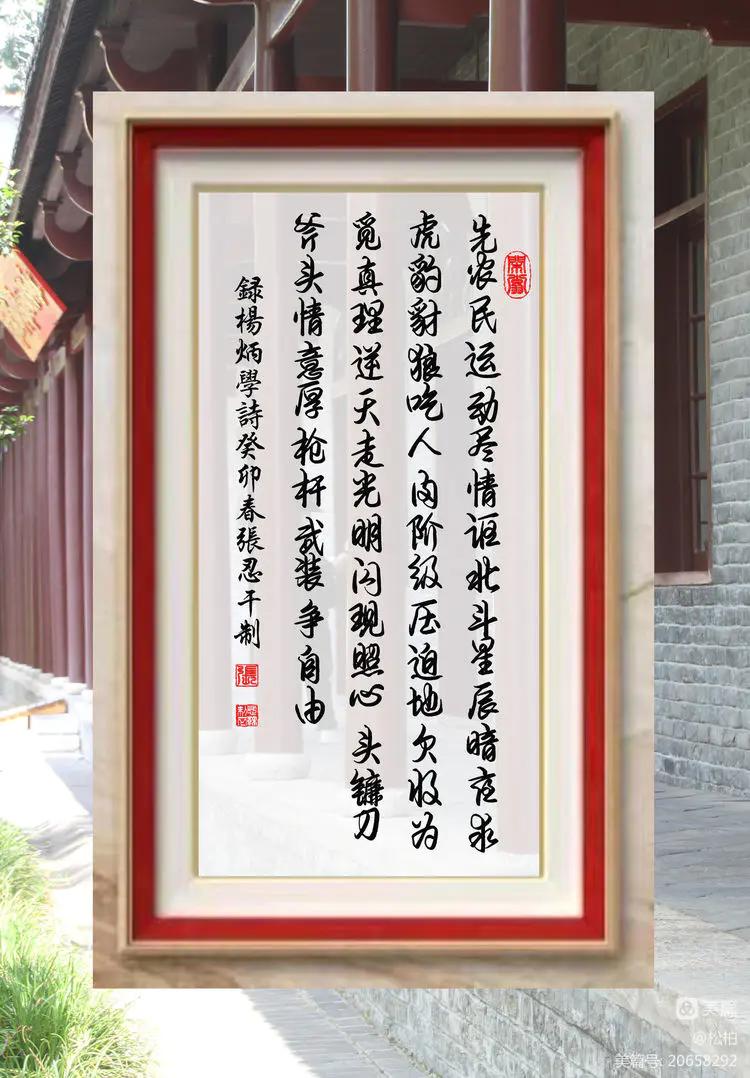 先农民运动尽情讴北斗星辰暗夜求
虎豹豺狼吃人肉阶级压迫地欠收为
觅真理逆天走光明闪现照心头镰刀
斧头情意厚枪杆武装争自由
録楊炳學詩癸卯春張忍干制
美篇
@松柏
美篇号: 20658292